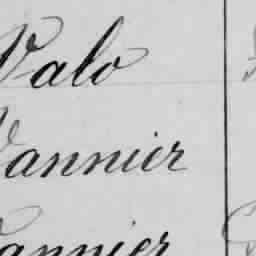 Valo
Vannier
Vannier